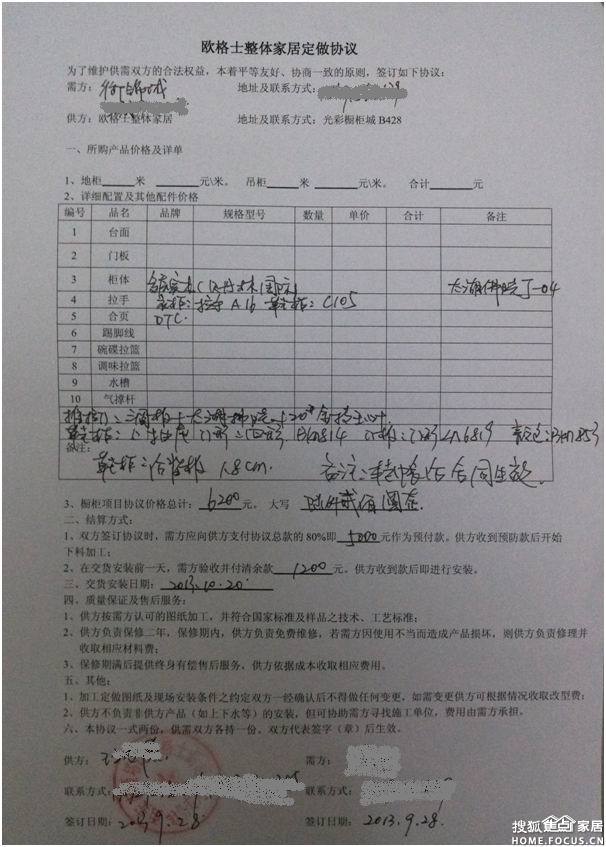 欧格士整体家居定做协议
为了维护供需双方的合法权益，本着平等友好、协商一致的原则，签订如下协议：
需方： 地址及联系方式：
供方：欧格士整体家居 地址及联系方式：光彩橱柜城 B428
一、所购产品价格及详单
1、地柜______米 ______元\米。 吊柜______米 ______元\米。 合计______元
2、详细配置及其他配件价格
编号 品名 品牌 规格型号 数量 单价 合计 备注
1 台面
2 门板
3 柜体
4 拉手 拉手 A16 C105
5 合页 DTC.
6 踢脚线
7 碗碟拉篮
8 调味拉篮
9 水槽
10 气撑杆
备注：
1.8cm. 备注： 合同生效.
3、橱柜项目协议价格总计：6200元。大写 陆仟贰佰圆整.
二、结算方式：
1、双方签订协议时，需方应向供方支付协议总款的 80%即 5000 元作为预付款。供方收到预防款后开始
下料加工；
2、在交货安装前一天，需方验收并付清余款 1200 元。供方收到款后即进行安装。
三、交货安装日期：2013.10.20.
四、质量保证及售后服务：
1、供方按需方认可的图纸加工，并符合国家标准及样品之技术、工艺标准；
2、供方负责保修二年，保修期内，供方负责免费维修，若需方因使用不当而造成产品损坏，则供方负责修理并
收取相应材料费；
3、保修期满后提供终身有偿售后服务，供方依据成本收取相应费用。
五、其他：
1、加工定做图纸及现场安装条件之约定双方一经确认后不得做任何变更，如需变更供方可根据情况收取改型费；
2、供方不负责非供方产品（如上下水等）的安装，但可协助需方寻找施工单位，费用由需方承担。
六、本协议一式两份，供需双方各持一份。双方代表签字（章）后生效。
供方： 需方：
联系方式： 联系方式：
签订日期：2013.9.28. 签订日期：2013.9.28.
搜狐焦点家居
HOME.FOCUS.CN